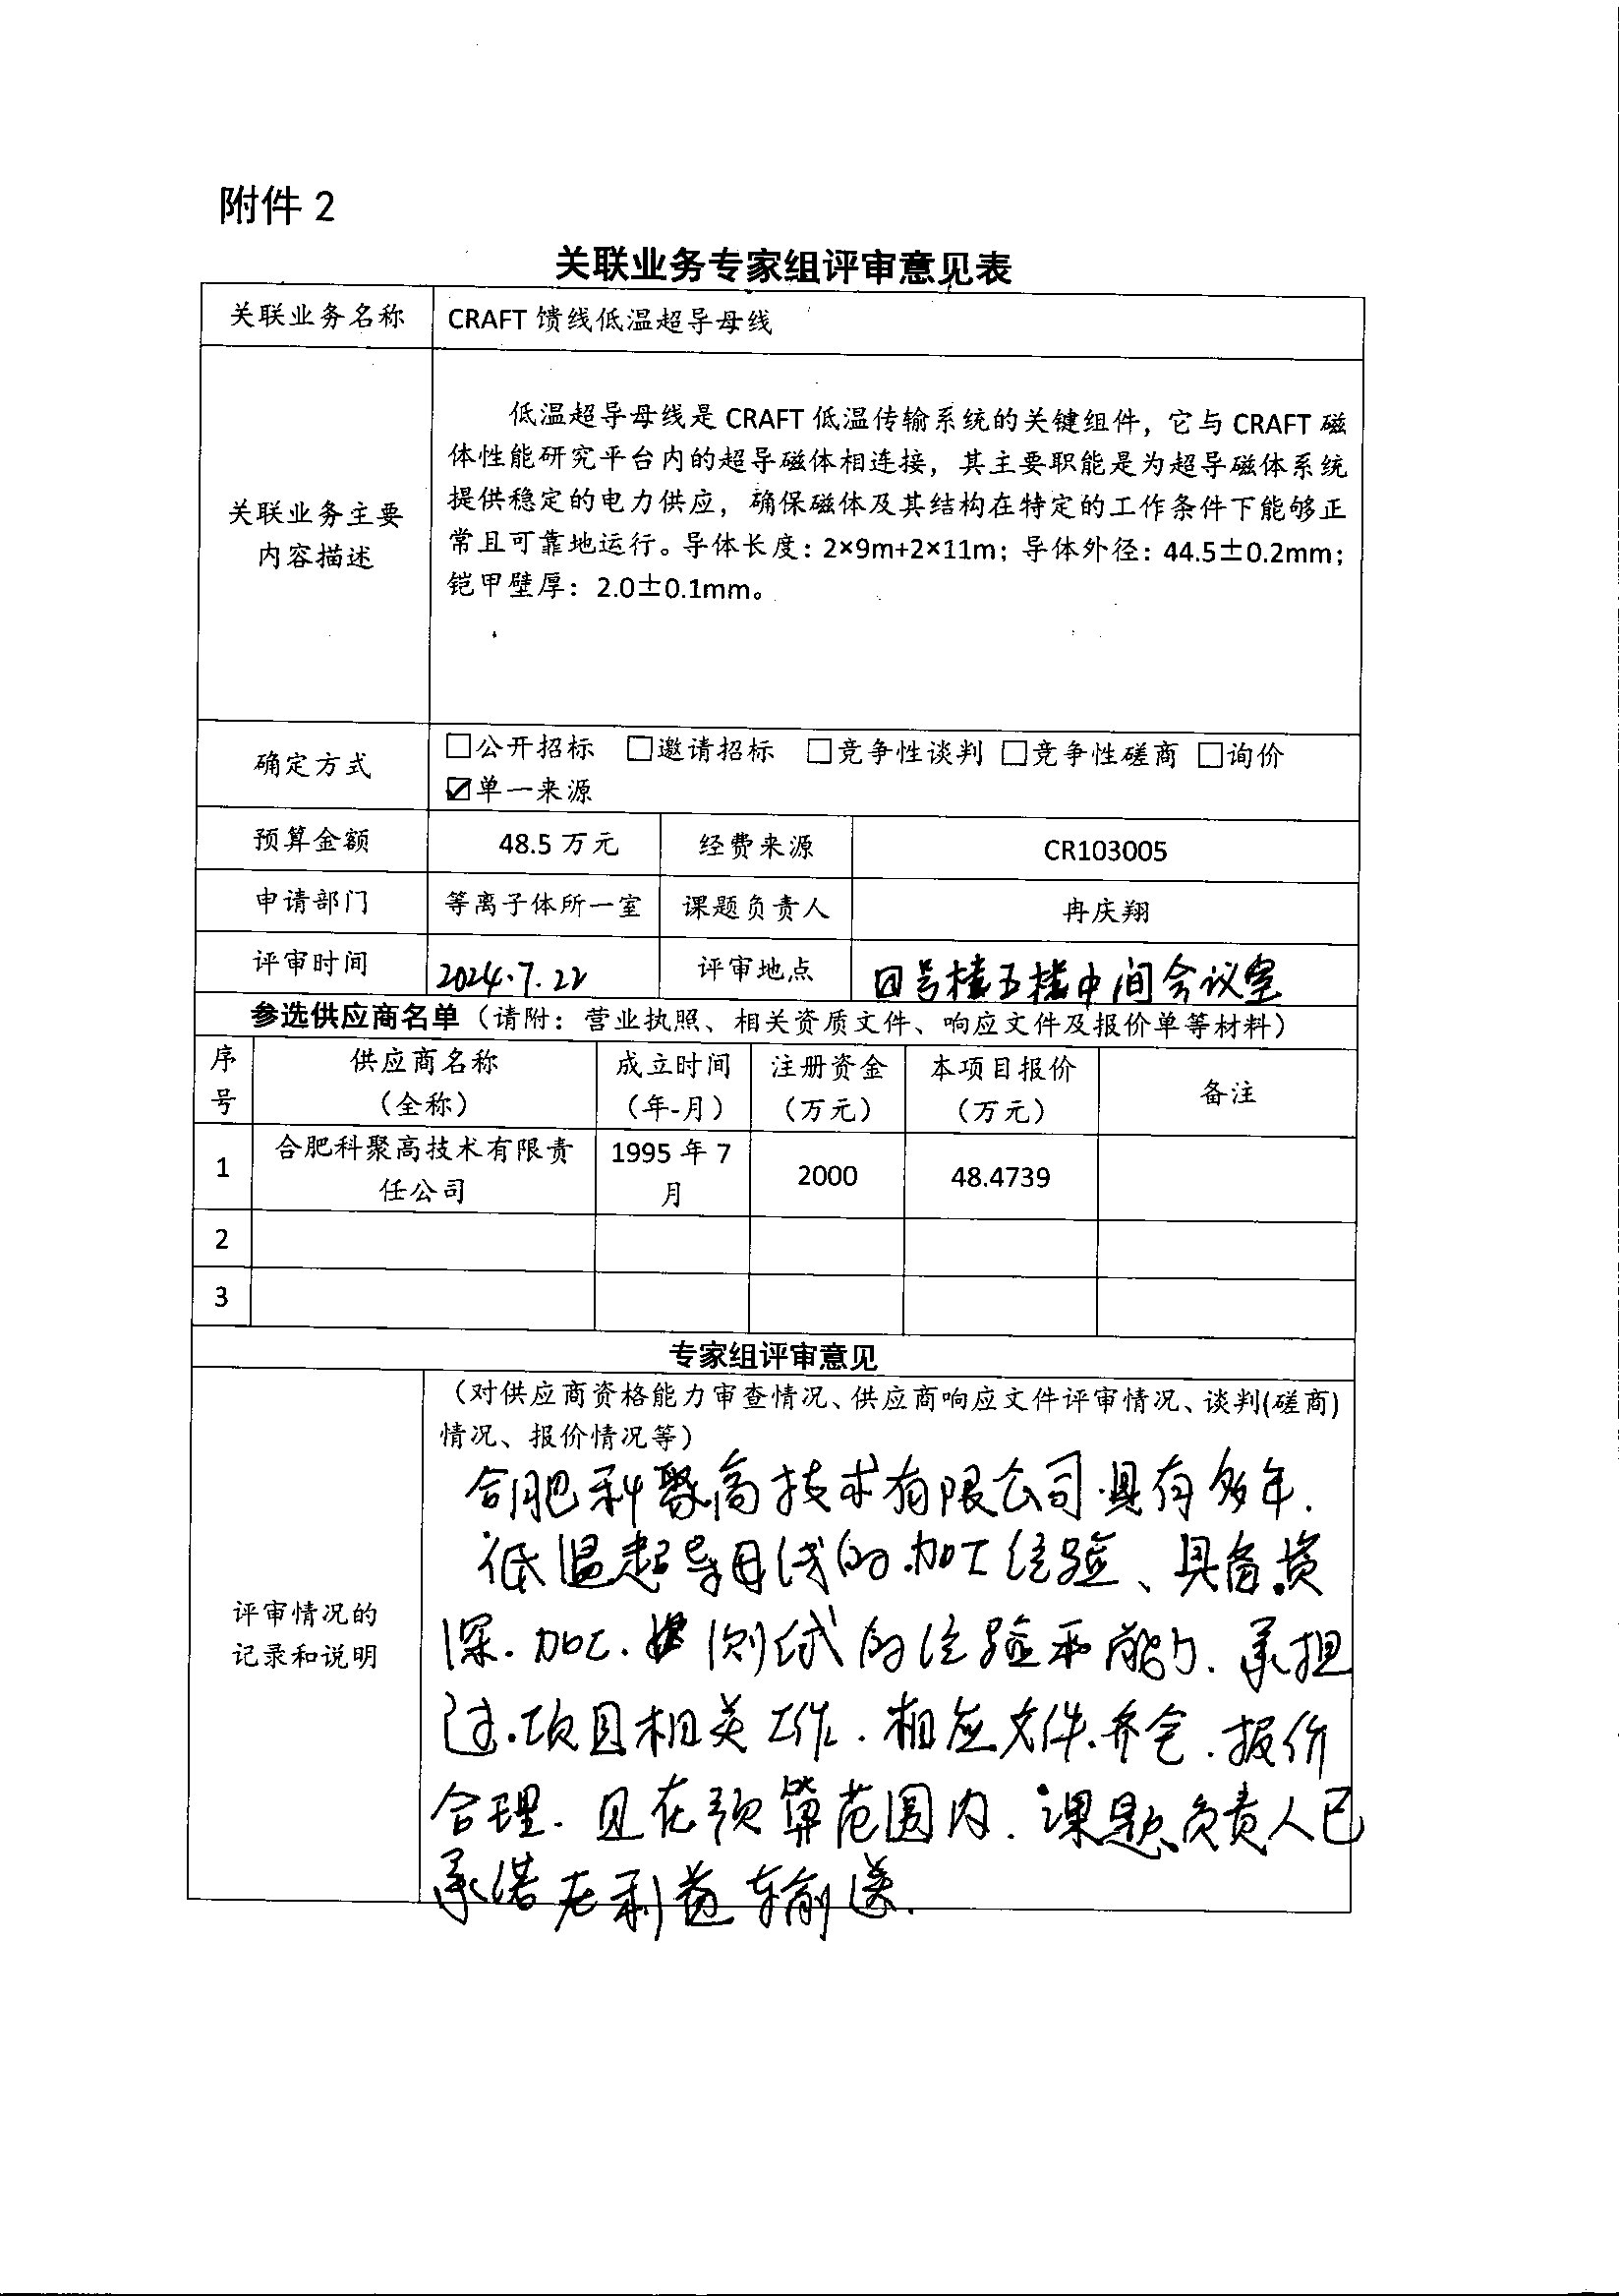 附件 2
关联业务专家组评审意见表
关联业务名称
CRAFT 馈线低温超导母线
关联业务主要
内容描述
低温超导母线是 CRAFT 低温传输系统的关键组件，它与 CRAFT 磁
体性能研究平台内的超导磁体相连接，其主要职能是为超导磁体系统
提供稳定的电力供应，确保磁体及其结构在特定的工作条件下能够正
常且可靠地运行。导体长度：2×9m+2×11m；导体外径：44.5±0.2mm；
铠甲壁厚：2.0±0.1mm。
确定方式
☐公开招标 ☐邀请招标 ☐竞争性谈判 ☐竞争性磋商 ☐询价
☑单一来源
预算金额 48.5 万元 经费来源 CR103005
申请部门 等离子体所一室 课题负责人 冉庆翔
评审时间 2024.7.22 评审地点 四号楼五楼中间会议室
参选供应商名单（请附：营业执照、相关资质文件、响应文件及报价单等材料）
序号 供应商名称（全称） 成立时间（年-月） 注册资金（万元） 本项目报价（万元） 备注
1 合肥科聚高技术有限责任公司 1995 年 7 月 2000 48.4739
2
3
专家组评审意见
评审情况的
记录和说明
（对供应商资格能力审查情况、供应商响应文件评审情况、谈判(磋商)
情况、报价情况等）
合肥科聚高技术有限公司具有多年.
低温超导母线的加工经验、具备资
深.加工.测试的经验和能力.承担
过.项目相关工作.相应文件.齐全.报价
合理.且在预算范围内.课题负责人已
承诺无利益输送.